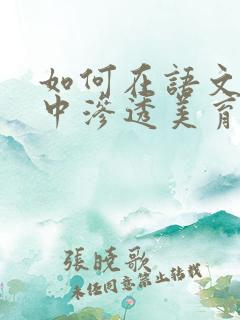 如何在語文
中滲透美育
張曉歌
未經同意禁止轉載